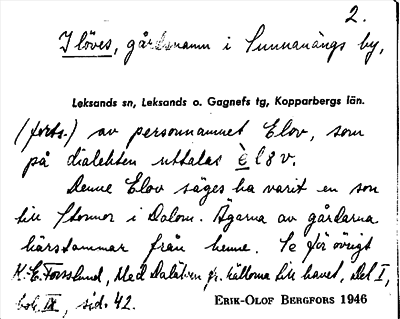 2.
Ilöves, gårdsnamn i Sunnanängs by,
Leksands sn, Leksands o. Gagnefs tg, Kopparbergs län.
(forts.) av personnamnet Elov, som
på dialekten uttalas è l 8 v.
Denne Elov säges ha varit en son
till i Dalom. Ägarna av gårdarna
härstammar från henne. Se för övrigt
K. E. Forsslund, Med Dalälven fr. källorna till havet, Del I,
bok IX, sid. 42.
ERIK-OLOF BERGFORS 1946